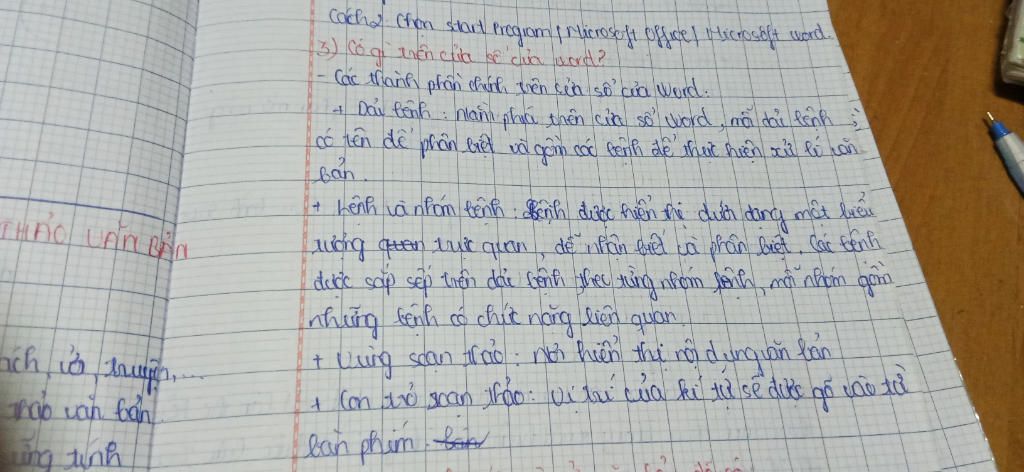 Cách2 Chọn start Program / Microsoft Office / Microsoft word.
3) Có gì trên cửa sổ của word?
- Các thành phần chính trên cửa sổ của Word.
+ Dải lệnh: nằm phía trên cửa sổ word, mỗi dải lệnh
có tên để phân biệt và gồm các lệnh để thực hiện xử lí văn
bản.
+ Lệnh và nhóm lệnh: Lệnh được hiển thị dưới dạng một biểu
tượng quen trực quan, dễ nhận biết và phân biệt. Các lệnh
được sắp sếp trên dải lệnh theo từng nhóm lệnh, mỗi nhóm gồm
những lệnh có chức năng liên quan.
+ Vùng soạn thảo: nơi hiển thị nội dung văn bản
+ Con trỏ soạn thảo: vị trí của kí tự sẽ được gõ vào từ
bàn phím. bản
THẢO VĂN BẢN
ách, vở, truyện,...
thảo văn bản
tính